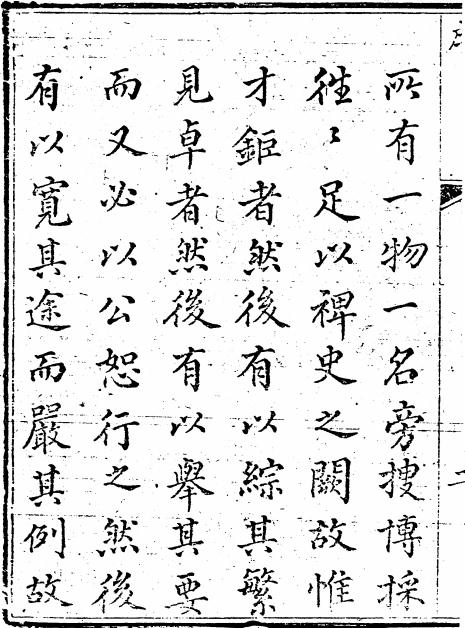 所有一物一名旁搜博採
徃〻足以裨史之闕故惟
才鉅者然後有以綜其繁
見卓者然後有以舉其要
而又必以公恕行之然後
有以寬其途而嚴其例故